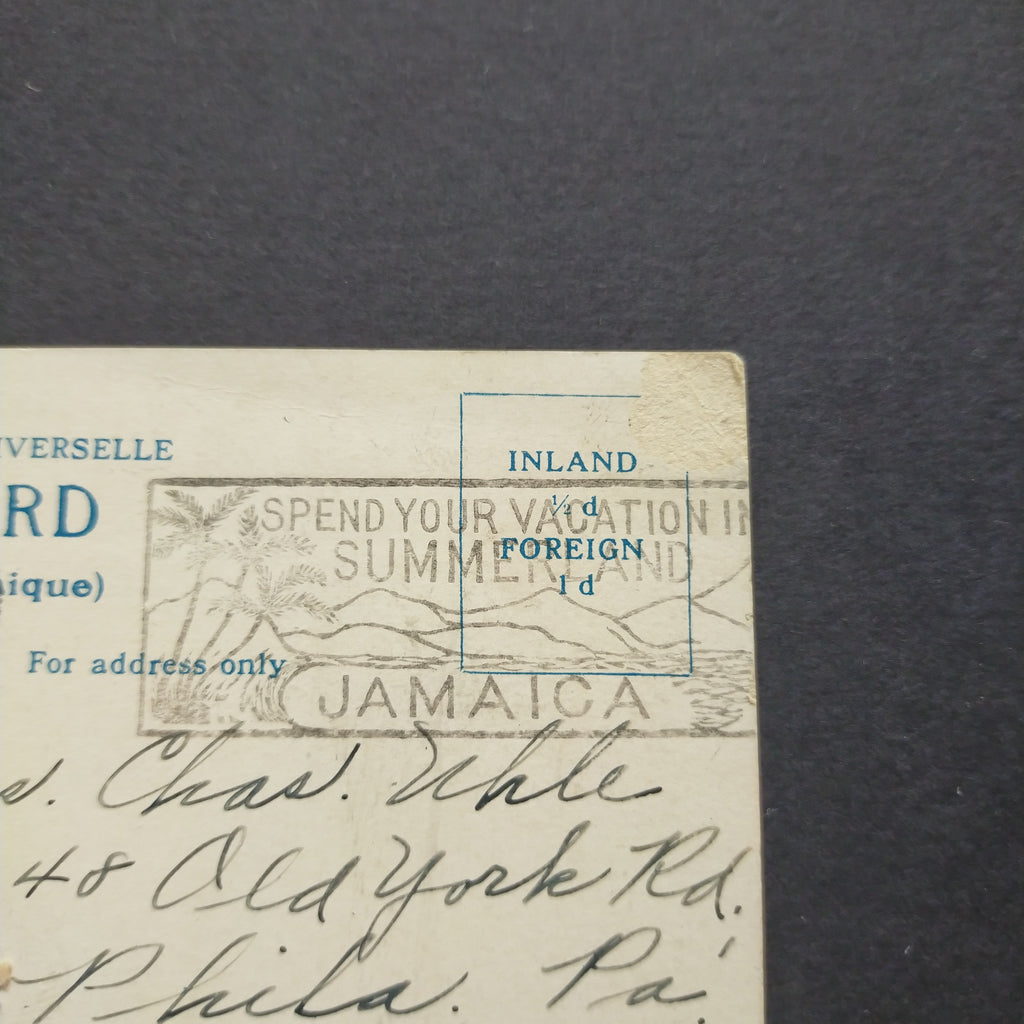 IVERSELLE
INLAND
RD
SPEND YOUR VACATION IN
½ d
SUMMERLAND
FOREIGN
ique)
1 d
For address only
JAMAICA
s. Chas. Uhle
48 Old York Rd.
Phila. Pa.